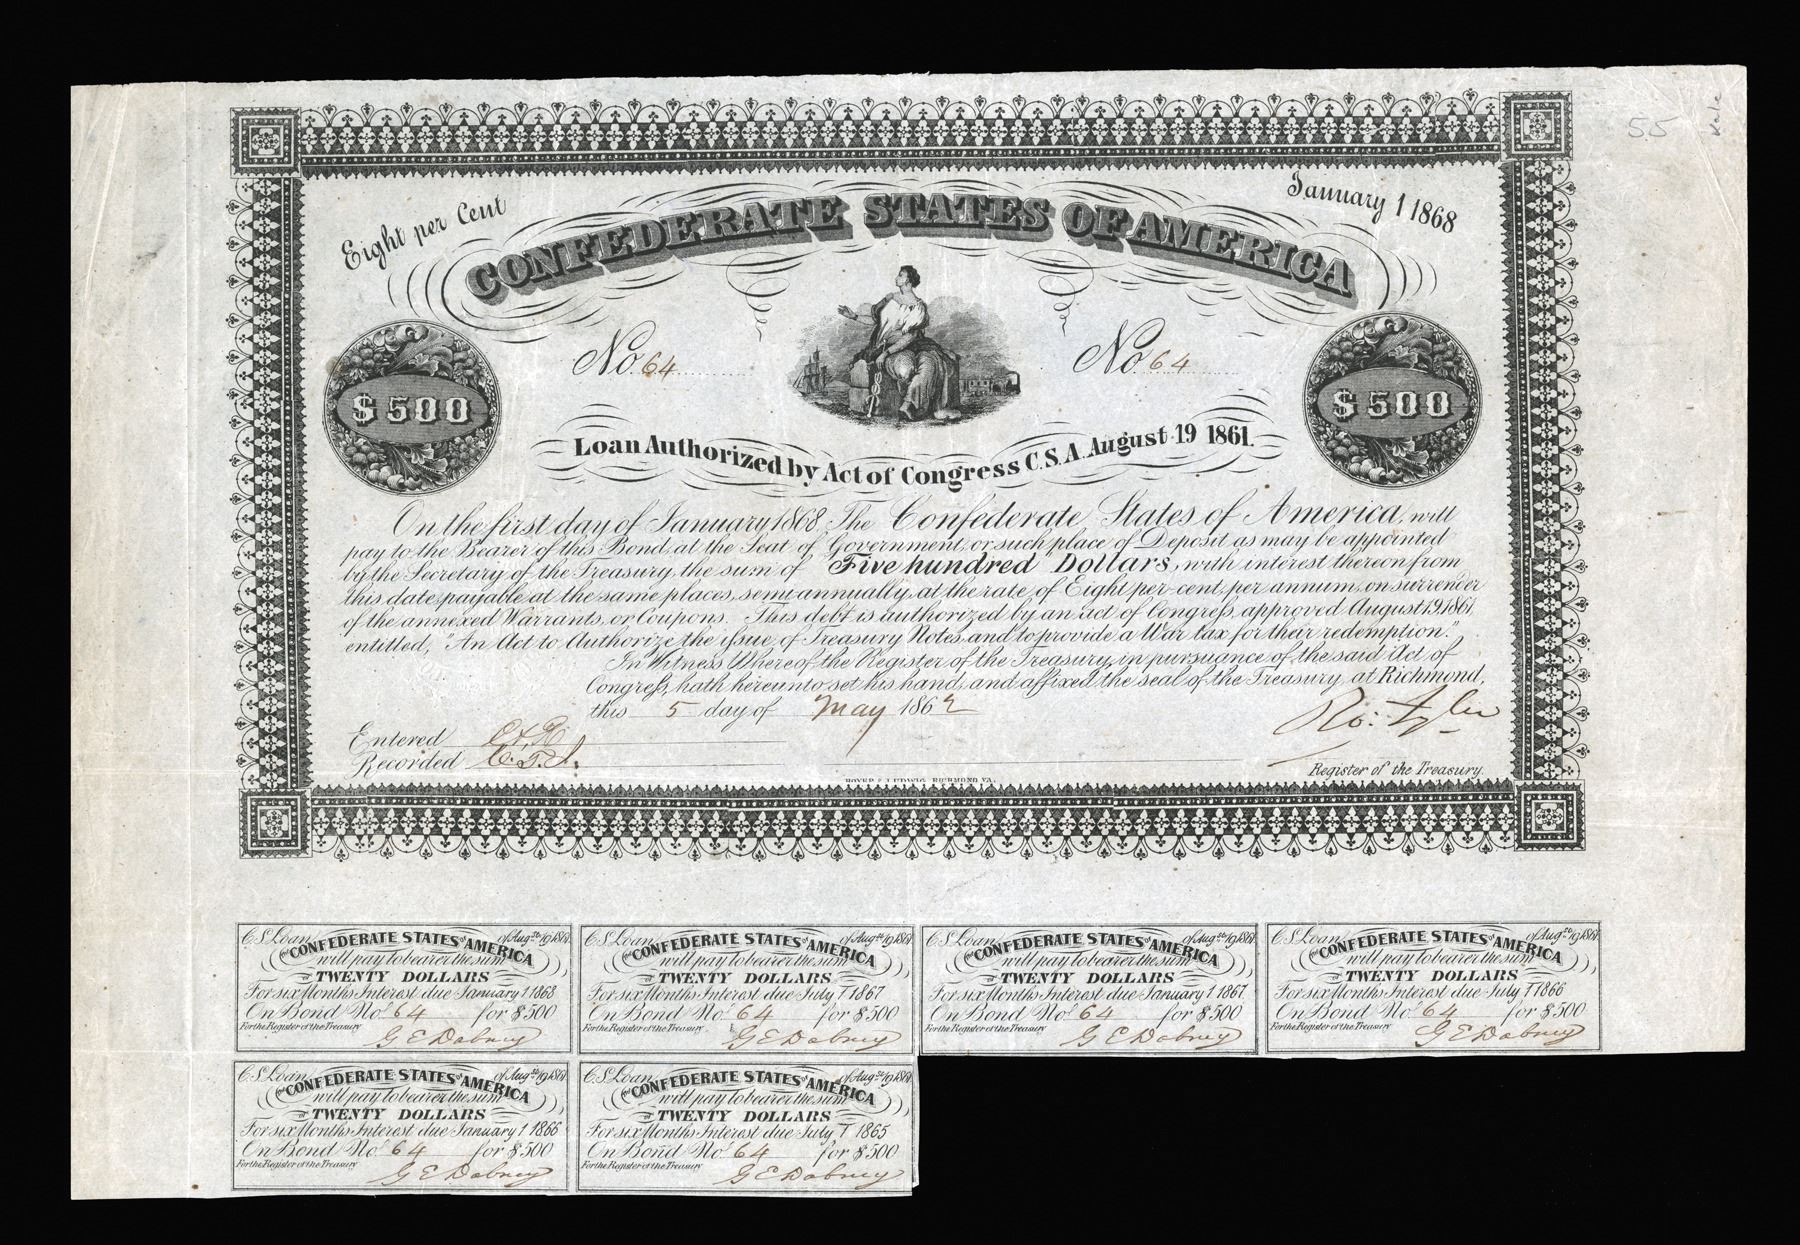 55
Kale
Eight per Cent
January 1 1868
CONFEDERATE STATES OF AMERICA
No. 64
No. 64
$ 500
$ 500
Loan Authorized by Act of Congress C.S.A. August 19 1861.
On the first day of January 1868, The Confederate States of America, will
pay to the Bearer of this Bond, at the Seat of Government, or such place of Deposit as may be appointed
by the Secretary of the Treasury, the sum of "Five hundred" Dollars, with interest thereon from
this date, payable at the same places, semi annually, at the rate of Eight per cent per annum, on surrender
of the annexed Warrants, or Coupons. This debt is authorized by an act of Congress, approved August 19, 1861,
entitled, "An Act to Authorize the issue of Treasury Notes, and to provide a War tax for their redemption."
In Witness Whereof the Register of the Treasury, in pursuance of the said Act of
Congress, hath hereunto set his hand, and affixed the seal of the Treasury, at Richmond,
this 5 day of May 1862
Entered
Recorded C.T.J.
Ro: Tyler
Register of the Treasury.
HOYER & LUDWIG, RICHMOND VA.
C.S. Loan of Aug.st 19 1861
The CONFEDERATE STATES of AMERICA
will pay to bearer the sum
of TWENTY DOLLARS
For six Months Interest due January 1 1868
On Bond No. 64 for $500
For the Register of the Treasury
G E Dabney
C.S. Loan of Aug.st 19 1861
The CONFEDERATE STATES of AMERICA
will pay to bearer the sum
of TWENTY DOLLARS
For six Months Interest due July 1 1867
On Bond No. 64 for $500
For the Register of the Treasury
G E Dabney
C.S. Loan of Aug.st 19 1861
The CONFEDERATE STATES of AMERICA
will pay to bearer the sum
of TWENTY DOLLARS
For six Months Interest due January 1 1867
On Bond No. 64 for $500
For the Register of the Treasury
G E Dabney
C.S. Loan of Aug.st 19 1861
The CONFEDERATE STATES of AMERICA
will pay to bearer the sum
of TWENTY DOLLARS
For six Months Interest due July 1 1866
On Bond No. 64 for $500
For the Register of the Treasury
G E Dabney
C.S. Loan of Aug.st 19 1861
The CONFEDERATE STATES of AMERICA
will pay to bearer the sum
of TWENTY DOLLARS
For six Months Interest due January 1 1866
On Bond No. 64 for $500
For the Register of the Treasury
G E Dabney
C.S. Loan of Aug.st 19 1861
The CONFEDERATE STATES of AMERICA
will pay to bearer the sum
of TWENTY DOLLARS
For six Months Interest due July 1 1865
On Bond No. 64 for $500
For the Register of the Treasury
G E Dabney